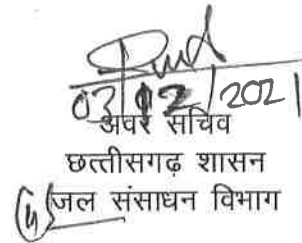 03/12/2021
अवर सचिव
छत्तीसगढ़ शासन
जल संसाधन विभाग